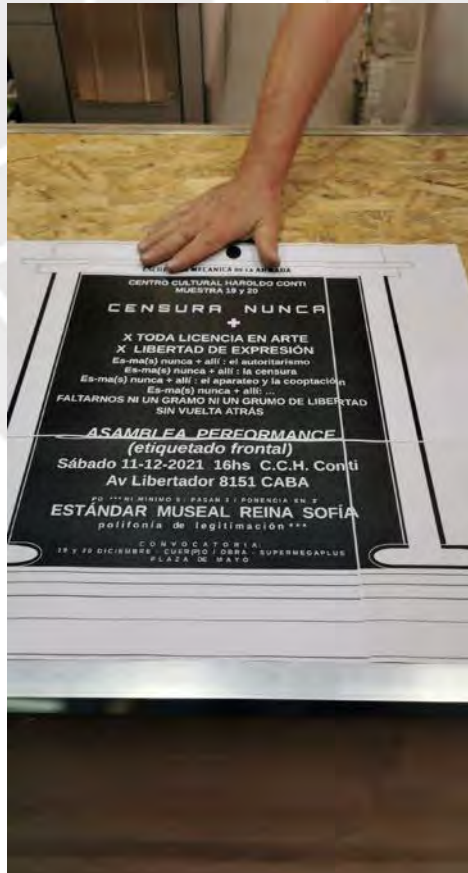 MECANICA DE LA ARMADA
CENTRO CULTURAL HAROLDO CONTI
MUESTRA 19 y 20
CENSURA NUNCA
+
X TODA LICENCIA EN ARTE
X LIBERTAD DE EXPRESIÓN
Es-ma(s) nunca + allí : el autoritarismo
Es-ma(s) nunca + allí : la censura
Es-ma(s) nunca + allí : el aparateo y la cooptación
Es-ma(s) nunca + allí: ...
FALTARNOS NI UN GRAMO NI UN GRUMO DE LIBERTAD
SIN VUELTA ATRÁS
ASAMBLEA PERFORMANCE
(etiquetado frontal)
Sábado 11-12-2021 16hs C.C.H. Conti
Av Libertador 8151 CABA
PONENCIA EN
ESTÁNDAR MUSEAL REINA SOFÍA
polifonía de legitimación ***
CONVOCATORIA:
19 y 20 DICIEMBRE - CUER(P)O / OBRA - SUPERMEGAPLUS
PLAZA DE MAYO